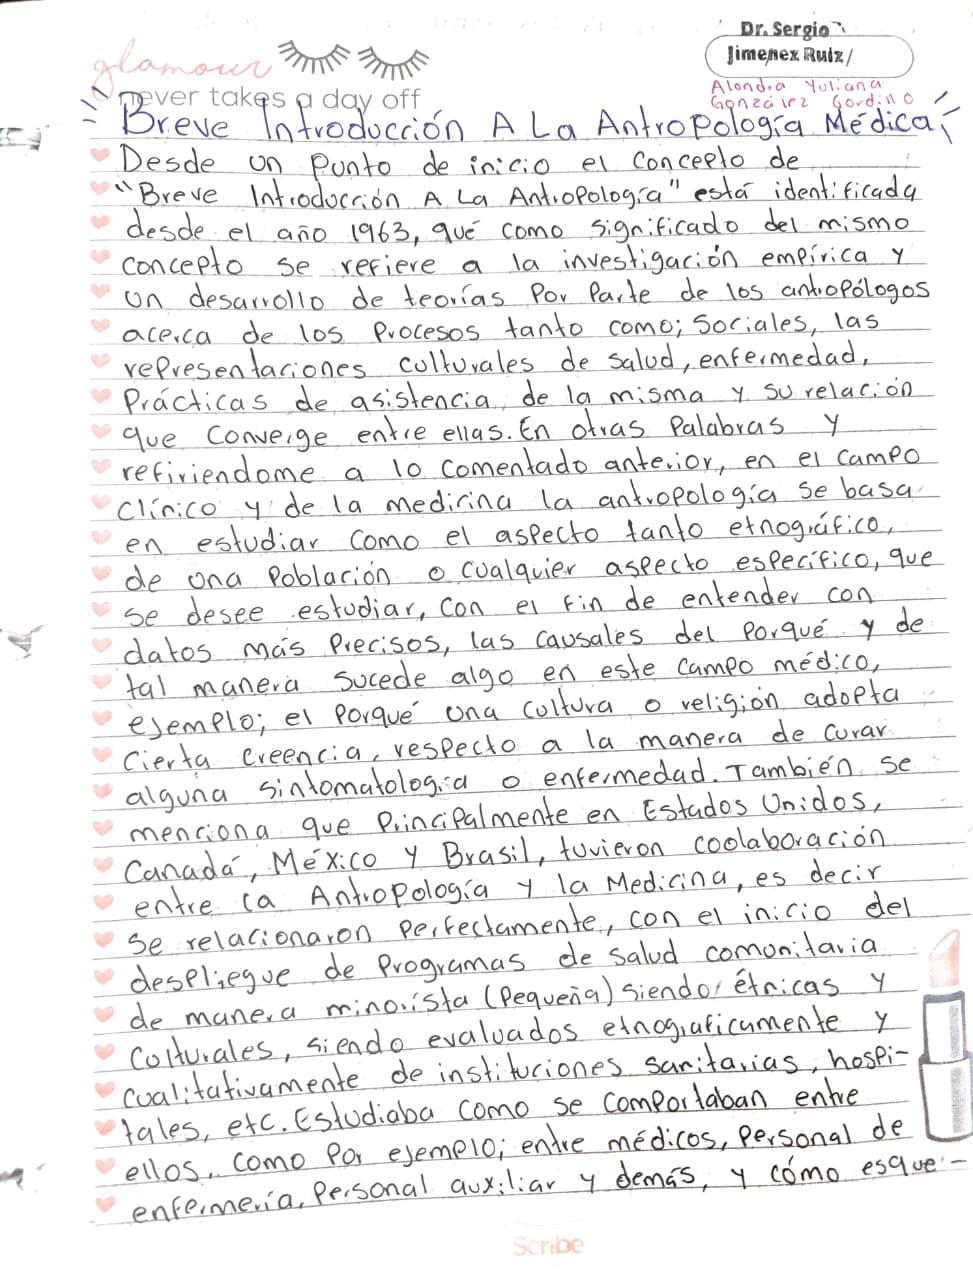 Dr. Sergio
Jimenez Ruiz/
glamour
never takes a day off
Alondra Yuliana
González Gordillo
Breve Introducción A La Antropología Médica
Desde un punto de inicio el concepto de
"Breve Introducción A La Antropología" está identificada
desde el año 1963, qué como significado del mismo
concepto se refiere a la investigación empírica y
un desarrollo de teorías por parte de los antropólogos
acerca de los procesos tanto como; sociales, las
representaciones culturales de salud, enfermedad,
prácticas de asistencia de la misma y su relación
que converge entre ellas. En otras palabras y
refiriendome a lo comentado anterior, en el campo
clínico y de la medicina la antropología se basa
en estudiar como el aspecto tanto etnográfico,
de una población o cualquier aspecto específico, que
se desee estudiar, con el fin de entender con
datos más precisos, las causales del porqué y de
tal manera sucede algo en este campo médico,
ejemplo; el porqué una cultura o religión adopta
cierta creencia, respecto a la manera de curar
alguna sintomatología o enfermedad. También se
menciona que principalmente en Estados Unidos,
Canadá, México y Brasil, tuvieron coolaboración
entre la Antropología y la Medicina, es decir
se relacionaron perfectamente, con el inicio del
despliegue de programas de salud comunitaria
de manera minorista (pequeña) siendo étnicas y
culturales, siendo evaluados etnograficamente y
cualitativamente de instituciones sanitarias, hospi-
tales, etc. Estudiaba como se comportaban entre
ellos, como por ejemplo; entre médicos, personal de
enfermería, personal auxiliar y demás, y cómo esque-
Scribe